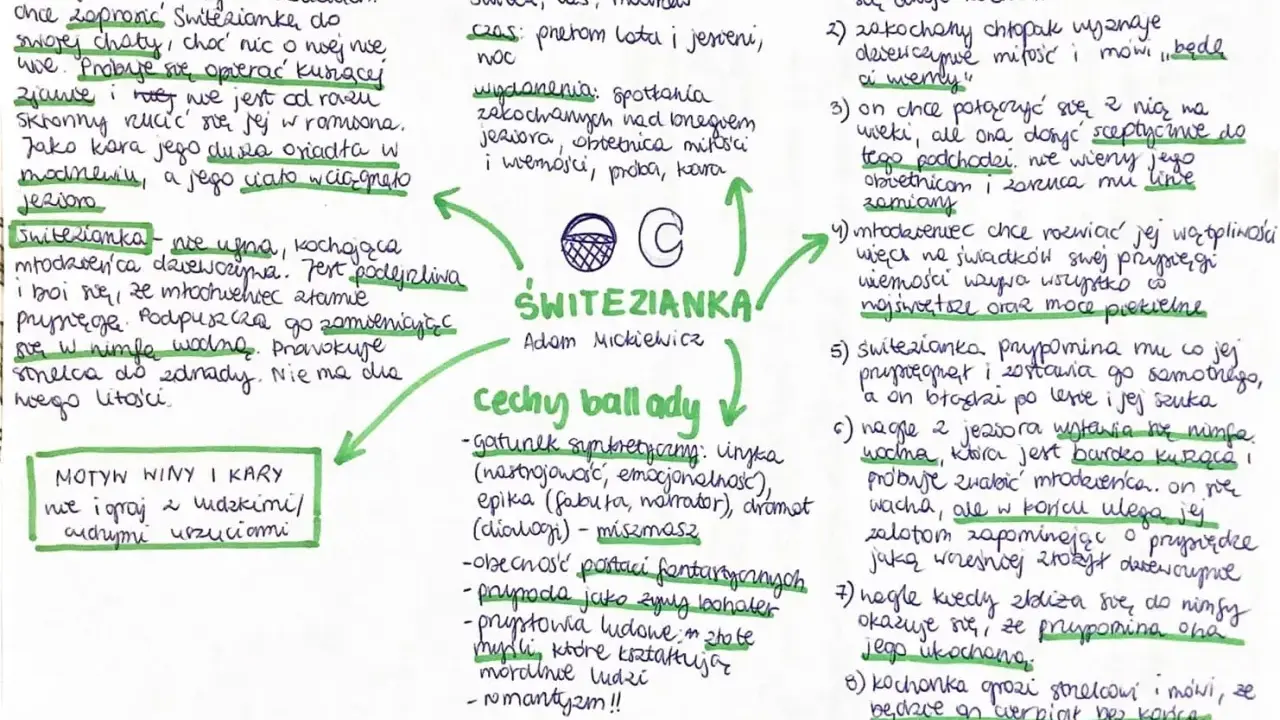 chce zaprosić Świteziankę do
swojej chaty, choć nic o niej nie
wie. Próbuje się opierać kuszącej
zjawie i nie jest od razu
skłonny rzucić się jej w ramiona.
Jako kara jego dusza osiadła w
modrzewiu, a jego ciało wciągnęło
jezioro
Świtezianka - nie ufna, kochająca
młodzieńca dziewczyna. Jest podejrzliwa
i boi się, że młodzieniec złamie
przysięgę. Podpuszcza go zamieniając
się w nimfę wodną. Prowokuje
strzelca do zdrady. Nie ma dla
niego litości.
MOTYW WINY I KARY
nie igraj z ludzkimi/
cudzymi uczuciami
czas: przełom lata i jesieni,
noc
wydarzenia: spotkania
zakochanych nad brzegiem
jeziora, obietnica miłości
i wierności, próba, kara
C
ŚWITEZIANKA
Adam Mickiewicz
cechy ballady
- gatunek synkretyczny: liryka
(nastrojowość, emocjonalność),
epika (fabuła, narrator), dramat
(dialogi) - miszmasz
- obecność postaci fantastycznych
- przyroda jako żywy bohater
- przysłowia ludowe: "złote
myśli", które kształtują
moralnie ludzi
- romantyzm!!
2) zakochany chłopak wyznaje
dziewczynie miłość i mówi "będę
ci wierny"
3) on chce połączyć się z nią na
wieki, ale ona dosyć sceptycznie do
tego podchodzi. nie wierzy jego
obietnicom i zarzuca mu inne
zamiary
4) młodzieniec chce rozwiać jej wątpliwości
więc na świadków swej przysięgi
wierności wzywa wszystko co
najświętsze oraz moce piekielne
5) świtezianka przypomina mu co jej
przysięgnął i zostawia go samotnego,
a on błądzi po lesie i jej szuka
6) nagle z jeziora wyławia się nimfa
wodna, która jest bardzo kusząca i
próbuje zwabić młodzieńca. on się
wacha, ale w końcu ulega jej
zalotom zapominając o przysiędze
jaką wcześniej złożył dziewczynie
7) nagle kiedy zbliża się do nimfy
okazuje się, że przypomina ona
jego ukochaną.
8) kochanka grozi strzelcowi i mówi, że
będzie on cierpiał bez końca